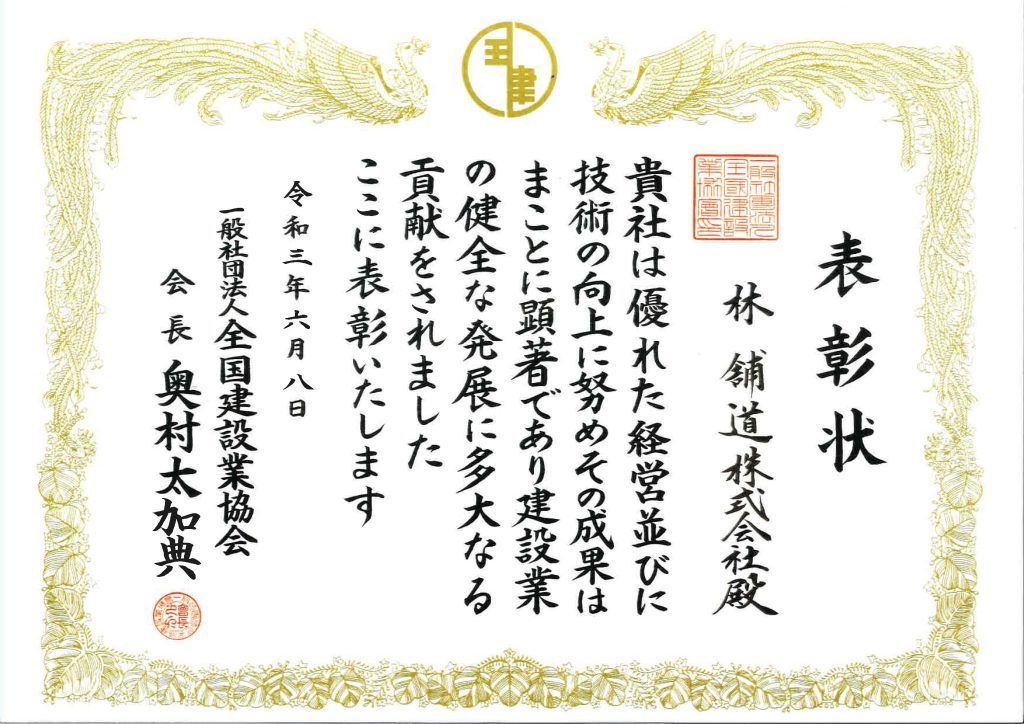 全建
表彰状
一般社団法人全国建設業協会印
林 舗道株式会社殿
貴社は優れた経営並びに
技術の向上に努めその成果は
まことに顕著であり建設業
の健全な発展に多大なる
貢献をされました
ここに表彰いたします
令和三年六月八日
一般社団法人全国建設業協会
会長 奥村太加典